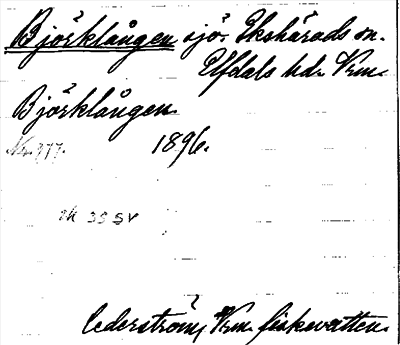 Björklången sjö. Ekshärads sn.
Elfdals hd. Vrm.
Björklången
No. 977. 1896.
33 SV
Cederström, Vrm. fiskevatten.